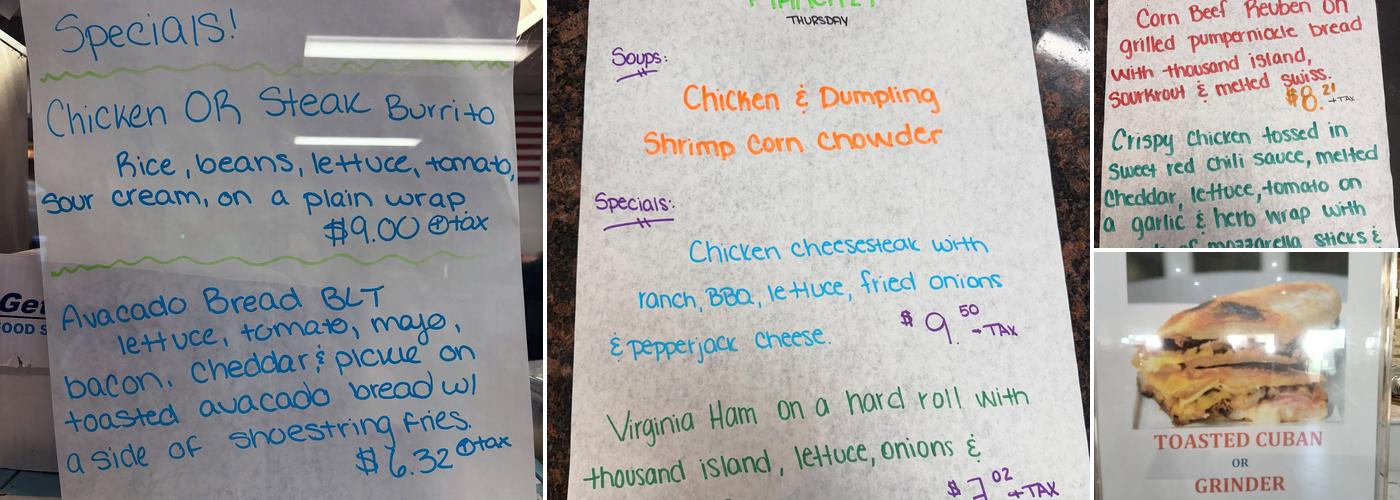 Specials!
Chicken OR Steak Burrito
Rice, beans, lettuce, tomato,
sour cream, on a plain wrap
$9.00 +tax
Avacado Bread BLT
lettuce, tomato, mayo,
bacon, cheddar & pickle on
toasted avacado bread w/
a side of shoestring fries.
$6.32 +tax
THURSDAY
Soups:
Chicken & Dumpling
Shrimp Corn Chowder
Specials:
Chicken cheesesteak with
ranch, BBQ, lettuce, fried onions
& pepperjack cheese.
$9.50 +TAX
Virginia Ham on a hard roll with
thousand island, lettuce, onions &
$7.02 +TAX
Corn Beef Reuben on
grilled pumpernickle bread
with thousand island,
sourkrout & melted swiss.
$8.21 +TAX
Crispy Chicken tossed in
sweet red chili sauce, melted
cheddar, lettuce, tomato on
a garlic & herb wrap with
of mozzarella sticks &
TOASTED CUBAN
OR
GRINDER